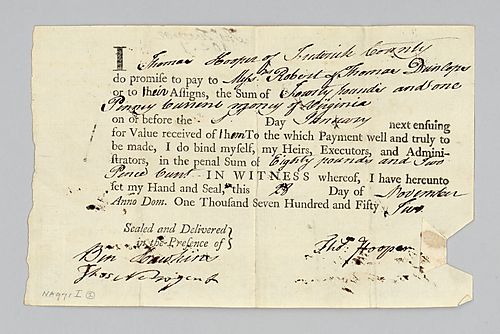 I Thomas Hooper of Fredrick County
do promise to pay to Messrs Robert & Thomas Dunlop
or to their Assigns, the Sum of Fourty pounds and one
Penney Current money of Virginia
on or before the Day January next ensuing
for Value received of them To the which Payment well and truly to
be made, I do bind myself, my Heirs, Executors, and Admini-
strators, in the penal Sum of Eighty pounds and Two
Pence Curt — IN WITNESS whereof, I have hereunto
set my Hand and Seal, this 28 Day of November
Anno Dom. One Thousand Seven Hundred and Fifty Two
Sealed and Delivered
in the Presence of
Thos. Hooper
Ben Hawkins
Thos
NA971 I